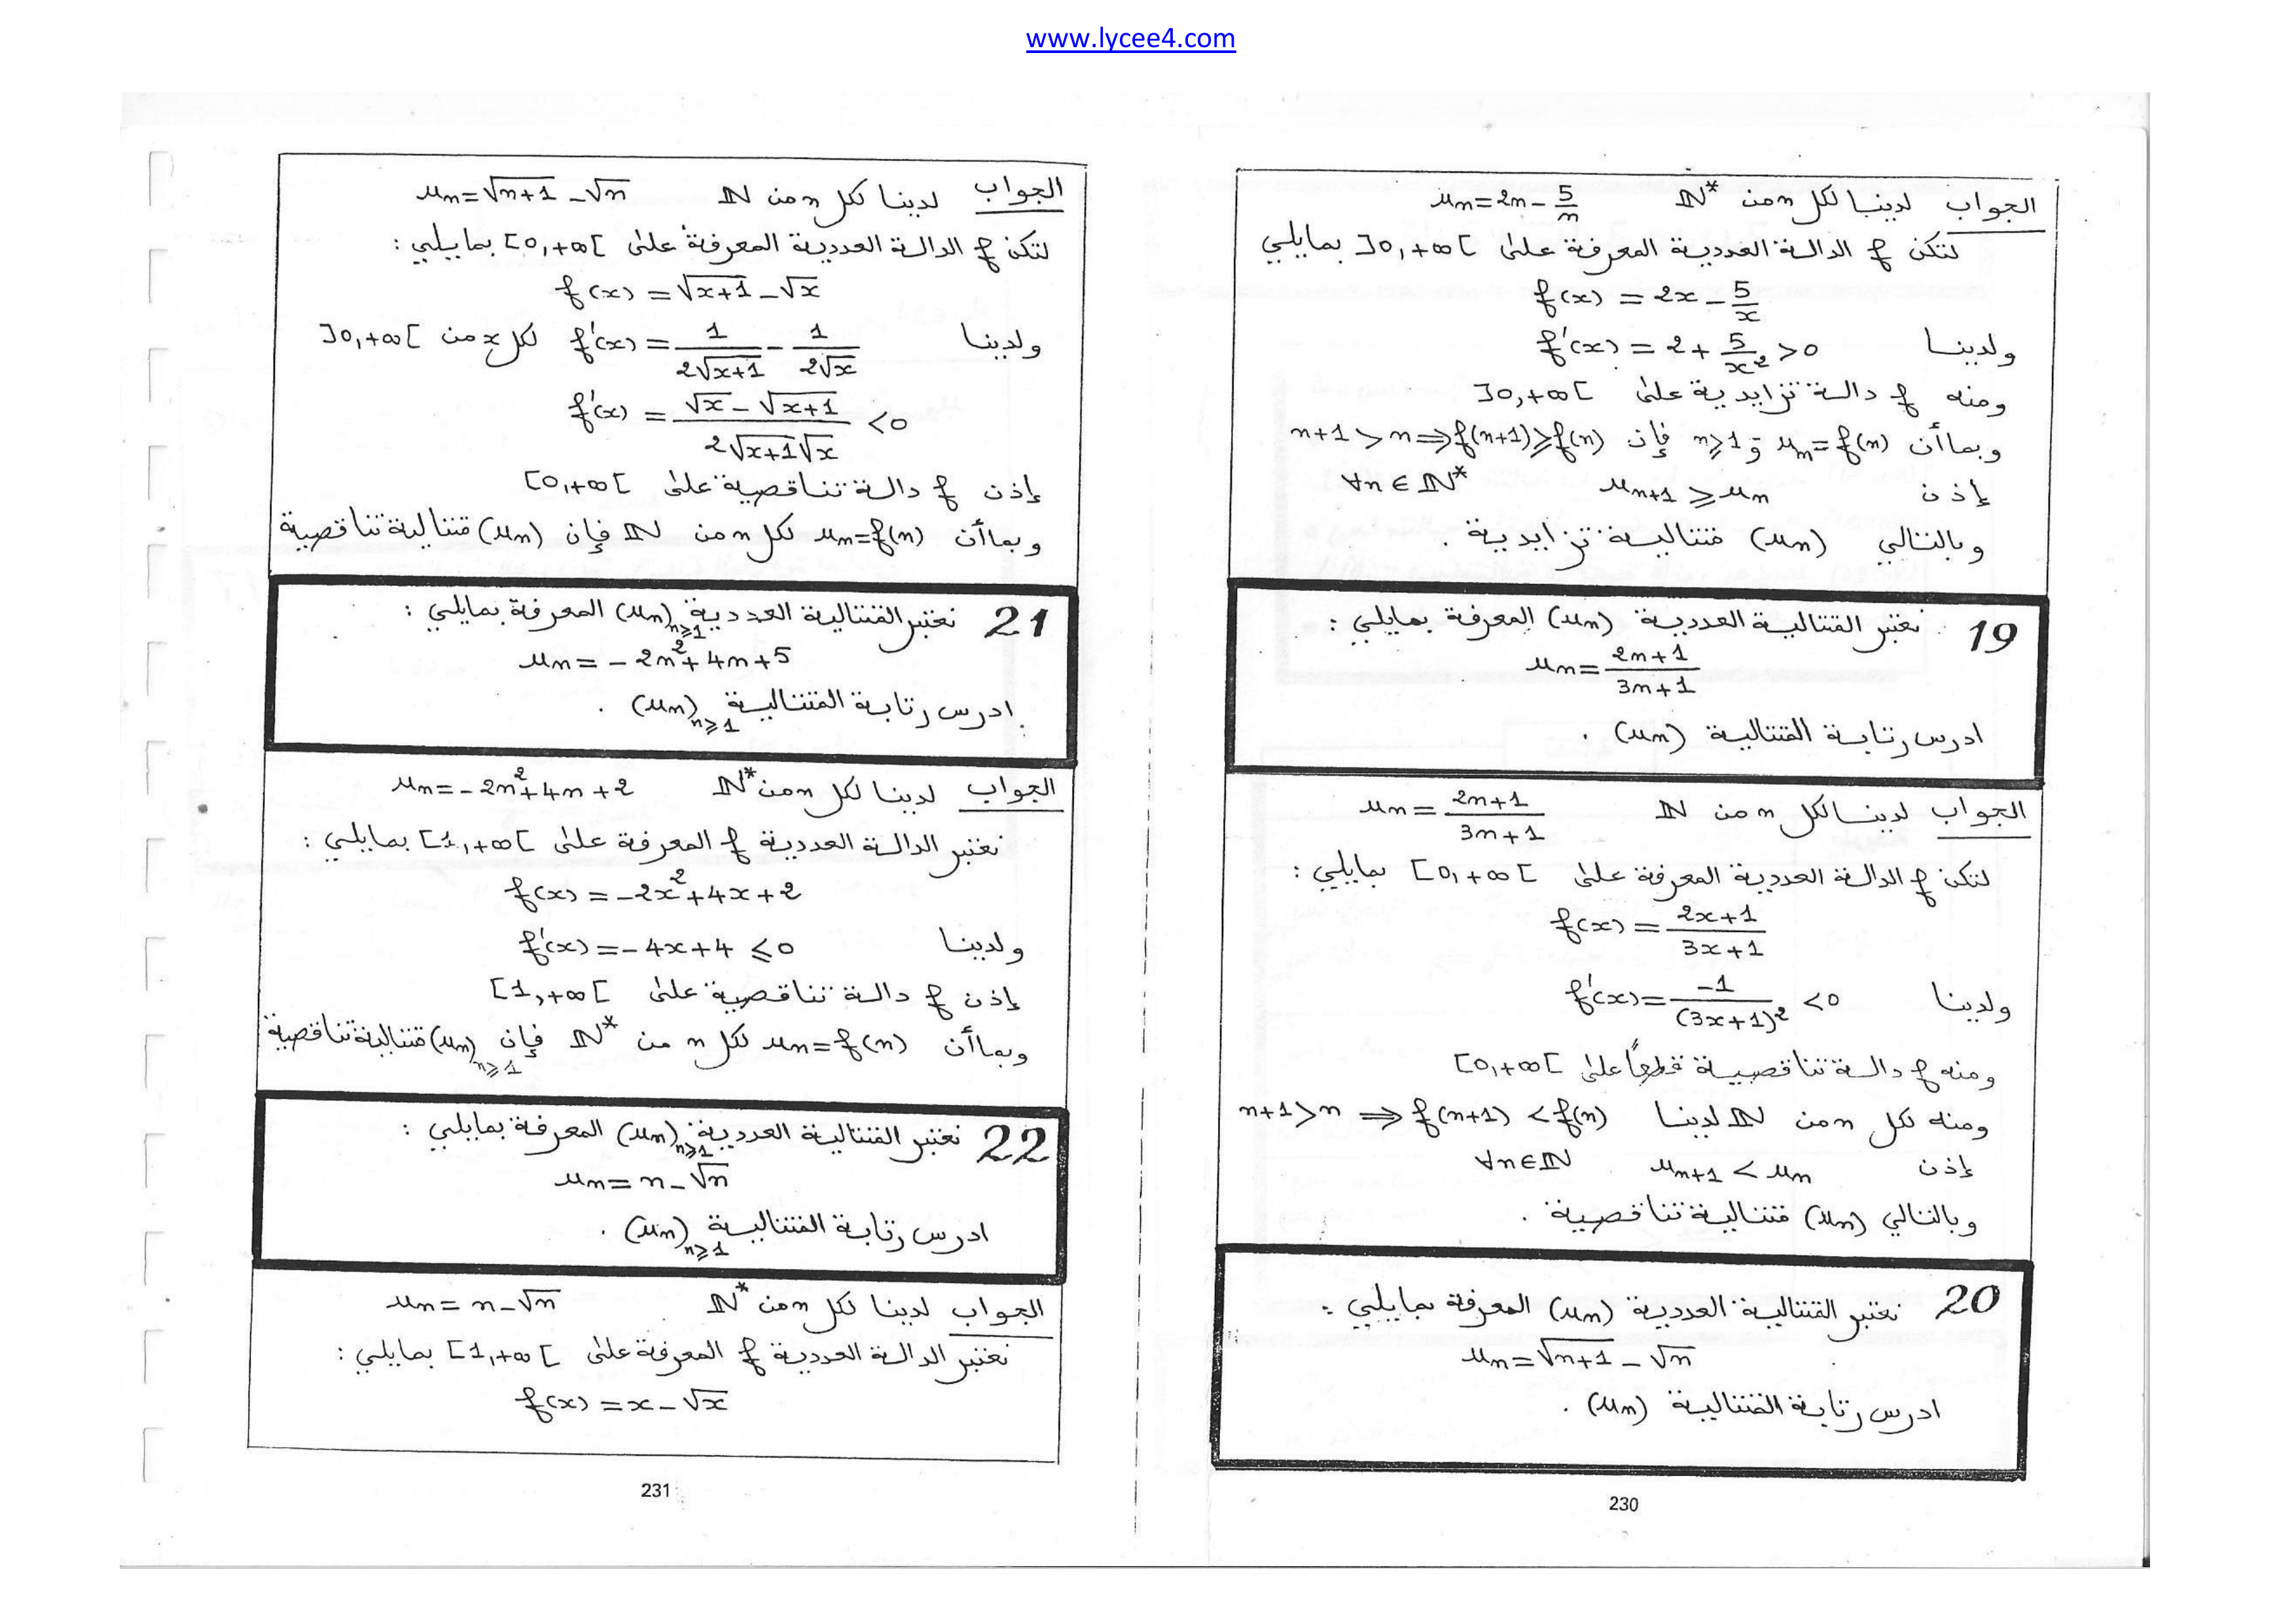 www.lycee4.com
الجواب لدينا لكل n من ℕ* uₙ = 2n - 5/n
لتكن f الدالة العددية المعرفة على ]0,+∞[ بمايلي
f(x) = 2x - 5/x
ولدينا f'(x) = 2 + 5/x² > 0
ومنه f دالة تزايدية على ]0,+∞[
وبما أن uₙ = f(n) و n ≥ 1 فإن n+1 > n ⇒ f(n+1) ≥ f(n)
إذن uₙ₊₁ ≥ uₙ ∀n ∈ ℕ*
وبالتالي (uₙ) متتالية تزايدية .
19 نعتبر المتتالية العددية (uₙ) المعرفة بمايلي :
uₙ = (2n+1)/(3n+1)
ادرس رتابة المتتالية (uₙ) .
الجواب لدينا لكل n من ℕ uₙ = (2n+1)/(3n+1)
لتكن f الدالة العددية المعرفة على [0,+∞[ بمايلي :
f(x) = (2x+1)/(3x+1)
ولدينا f'(x) = -1/(3x+1)² < 0
ومنه f دالة تناقصية قطعاً على [0,+∞[
ومنه لكل n من ℕ لدينا n+1 > n ⇒ f(n+1) < f(n)
إذن uₙ₊₁ < uₙ ∀n ∈ ℕ
وبالتالي (uₙ) متتالية تناقصية .
20 نعتبر المتتالية العددية (uₙ) المعرفة بمايلي :
uₙ = √(n+1) - √n
ادرس رتابة المتتالية (uₙ) .
230
الجواب لدينا لكل n من ℕ uₙ = √(n+1) - √n
لتكن f الدالة العددية المعرفة على [0,+∞[ بمايلي :
f(x) = √(x+1) - √x
ولدينا f'(x) = 1/(2√(x+1)) - 1/(2√x) لكل x من ]0,+∞[
f'(x) = (√x - √(x+1))/(2√(x+1)√x) < 0
إذن f دالة تناقصية على [0,+∞[
وبما أن uₙ = f(n) لكل n من ℕ فإن (uₙ) متتالية تناقصية
21 نعتبر المتتالية العددية (uₙ)ₙ≥₁ المعرفة بمايلي :
uₙ = - 2n² + 4n + 5
ادرس رتابة المتتالية (uₙ)ₙ≥₁ .
الجواب لدينا لكل n من ℕ* uₙ = - 2n² + 4n + 2
نعتبر الدالة العددية f المعرفة على [1,+∞[ بمايلي :
f(x) = -2x² + 4x + 2
ولدينا f'(x) = - 4x + 4 ≤ 0
إذن f دالة تناقصية على [1,+∞[
وبما أن uₙ = f(n) لكل n من ℕ* فإن (uₙ)ₙ≥₁ متتالية تناقصية
22 نعتبر المتتالية العددية (uₙ)ₙ≥₁ المعرفة بمايلي :
uₙ = n - √n
ادرس رتابة المتتالية (uₙ)ₙ≥₁ .
الجواب لدينا لكل n من ℕ* uₙ = n - √n
نعتبر الدالة العددية f المعرفة على [1,+∞[ بمايلي :
f(x) = x - √x
231